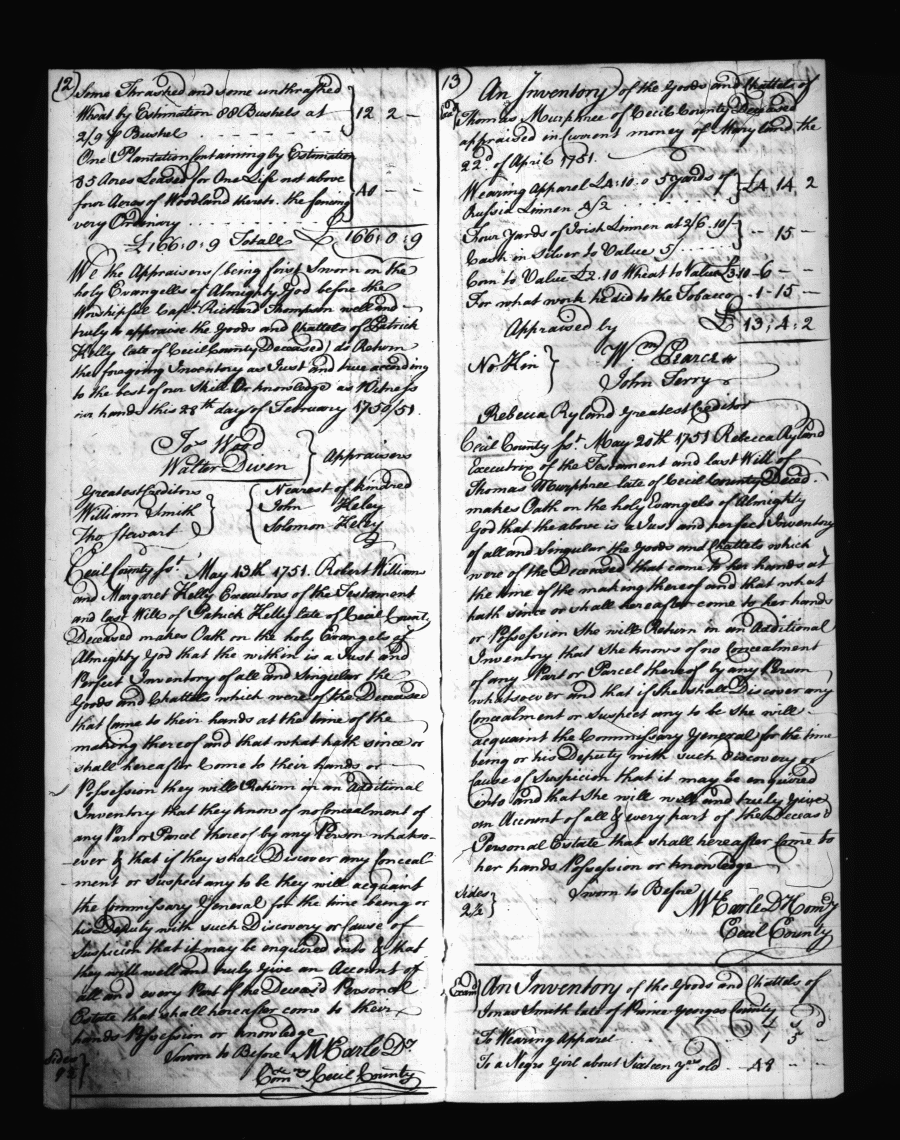 12
Some Thrashed and some unthrashed
Wheat by Estimation 88 Bushels at } 12 2 -
2/9 p Bushel
One Plantation Containing by Estimation
85 Acres Leased for One Life not above } 40 - -
four Acres of Woodland thereto. the fencing
very Ordinary
£166:0:9 Totall £ 166:0:9
We the Appraisers (being first Sworn on the
holy Evangells of Almighty God before the
Worshipfull Capt. Richard Thompson well and
truly to appraise the Goods and Chattels of Patrick
Kelly late of Cecil County Deceased) do Return
the foregoing Inventory as Just and true according
to the best of our Skill Or knowledge as Witness
our hands this 28th day of February 1750/51.
Jos Wood
Walter Owen } Appraisers
Greatest Creditors
William Smith
Tho Stewart
Nearest of kindred
John Keley
Solomon Kelly
Cecil County sst. May 13th 1751. Robert William
and Margaret Kelly Executors of the Testament
and last Will of Patrick Kelly late of Cecil County
Deceased makes Oath on the holy Evangels of
Almighty God that the within is a Just and
Perfect Inventory of all and Singular the
Goods and Chattels which were of the Deceased
that Came to their hands at the time of the
making thereof and that what hath since or
shall hereafter Come to their hands or
Possession they will Return in an Additional
Inventory that they know of no Concealment of
any Part or Parcel thereof by any Person whatso-
-ever & that if they shall Discover any Conceal-
ment or Suspect any to be they will acquaint
the Commissary General for the time being or
his Deputy with such Discovery or Cause of
Suspicion that it may be enquired into & that
they will well and truly give an Account of
all and every Part of the Deceased Personal
Estate that shall hereafter come to their
hands Possession or knowledge
Sides
Sworn to Before M Earle Dy
Comry Cecil County
13
An Inventory of the Goods and Chattels of
Thomas Murphree of Cecil County Deceased
appraised in Current money of Maryland the
22d of April 1751.
Wearing Apparel £4:10:0 5 yards of } £4 14 2
Russia Linnen 4/2
Four Yards of Irish Linnen at 2/6 10/ } - 15 -
Cash in Silver to Value 5/
Corn to Value £2.10 Wheat to Value £3:10 - 6 - -
For what work he did to the Tobacco - 1 - 15 -
£ 13:4:2
Appraised by
No Kin }
Wm Pearce
John Terry
Rebecca Ryland Greatest Creditor
Cecil County sst. May 20th 1751 Rebecca Ryland
Executrix of the Testament and last Will of
Thomas Murphree late of Cecil County Deced.
makes Oath on the holy Evangels of Almighty
God that the above is a Just and perfect Inventory
of all and Singular the Goods and Chattels which
were of the Deceased that came to her hands at
the time of the making thereof and that what
hath since or shall hereafter come to her hands
or Possession She will Return in an Additional
Inventory that She knows of no Concealment
of any Part or Parcel thereof by any Person
whatsoever and that if she shall Discover any
Concealment or Suspect any to be She will
acquaint the Commissary General for the time
being or his Deputy with such Discovery or
Cause of Suspicion that it may be enquired
into and that She will well and truly give
an Account of all & every part of the Deceased
Personal Estate that shall hereafter Come to
her hands Possession or knowledge
Sides
2½ }
Sworn to Before
M Earle Dy Comry
Cecil County
Examd
An Inventory of the Goods and Chattels of
Jonas Smith late of Prince Georges County
To Wearing Apparel
To a Negro Girl about Sixteen yrs old - 48 - -